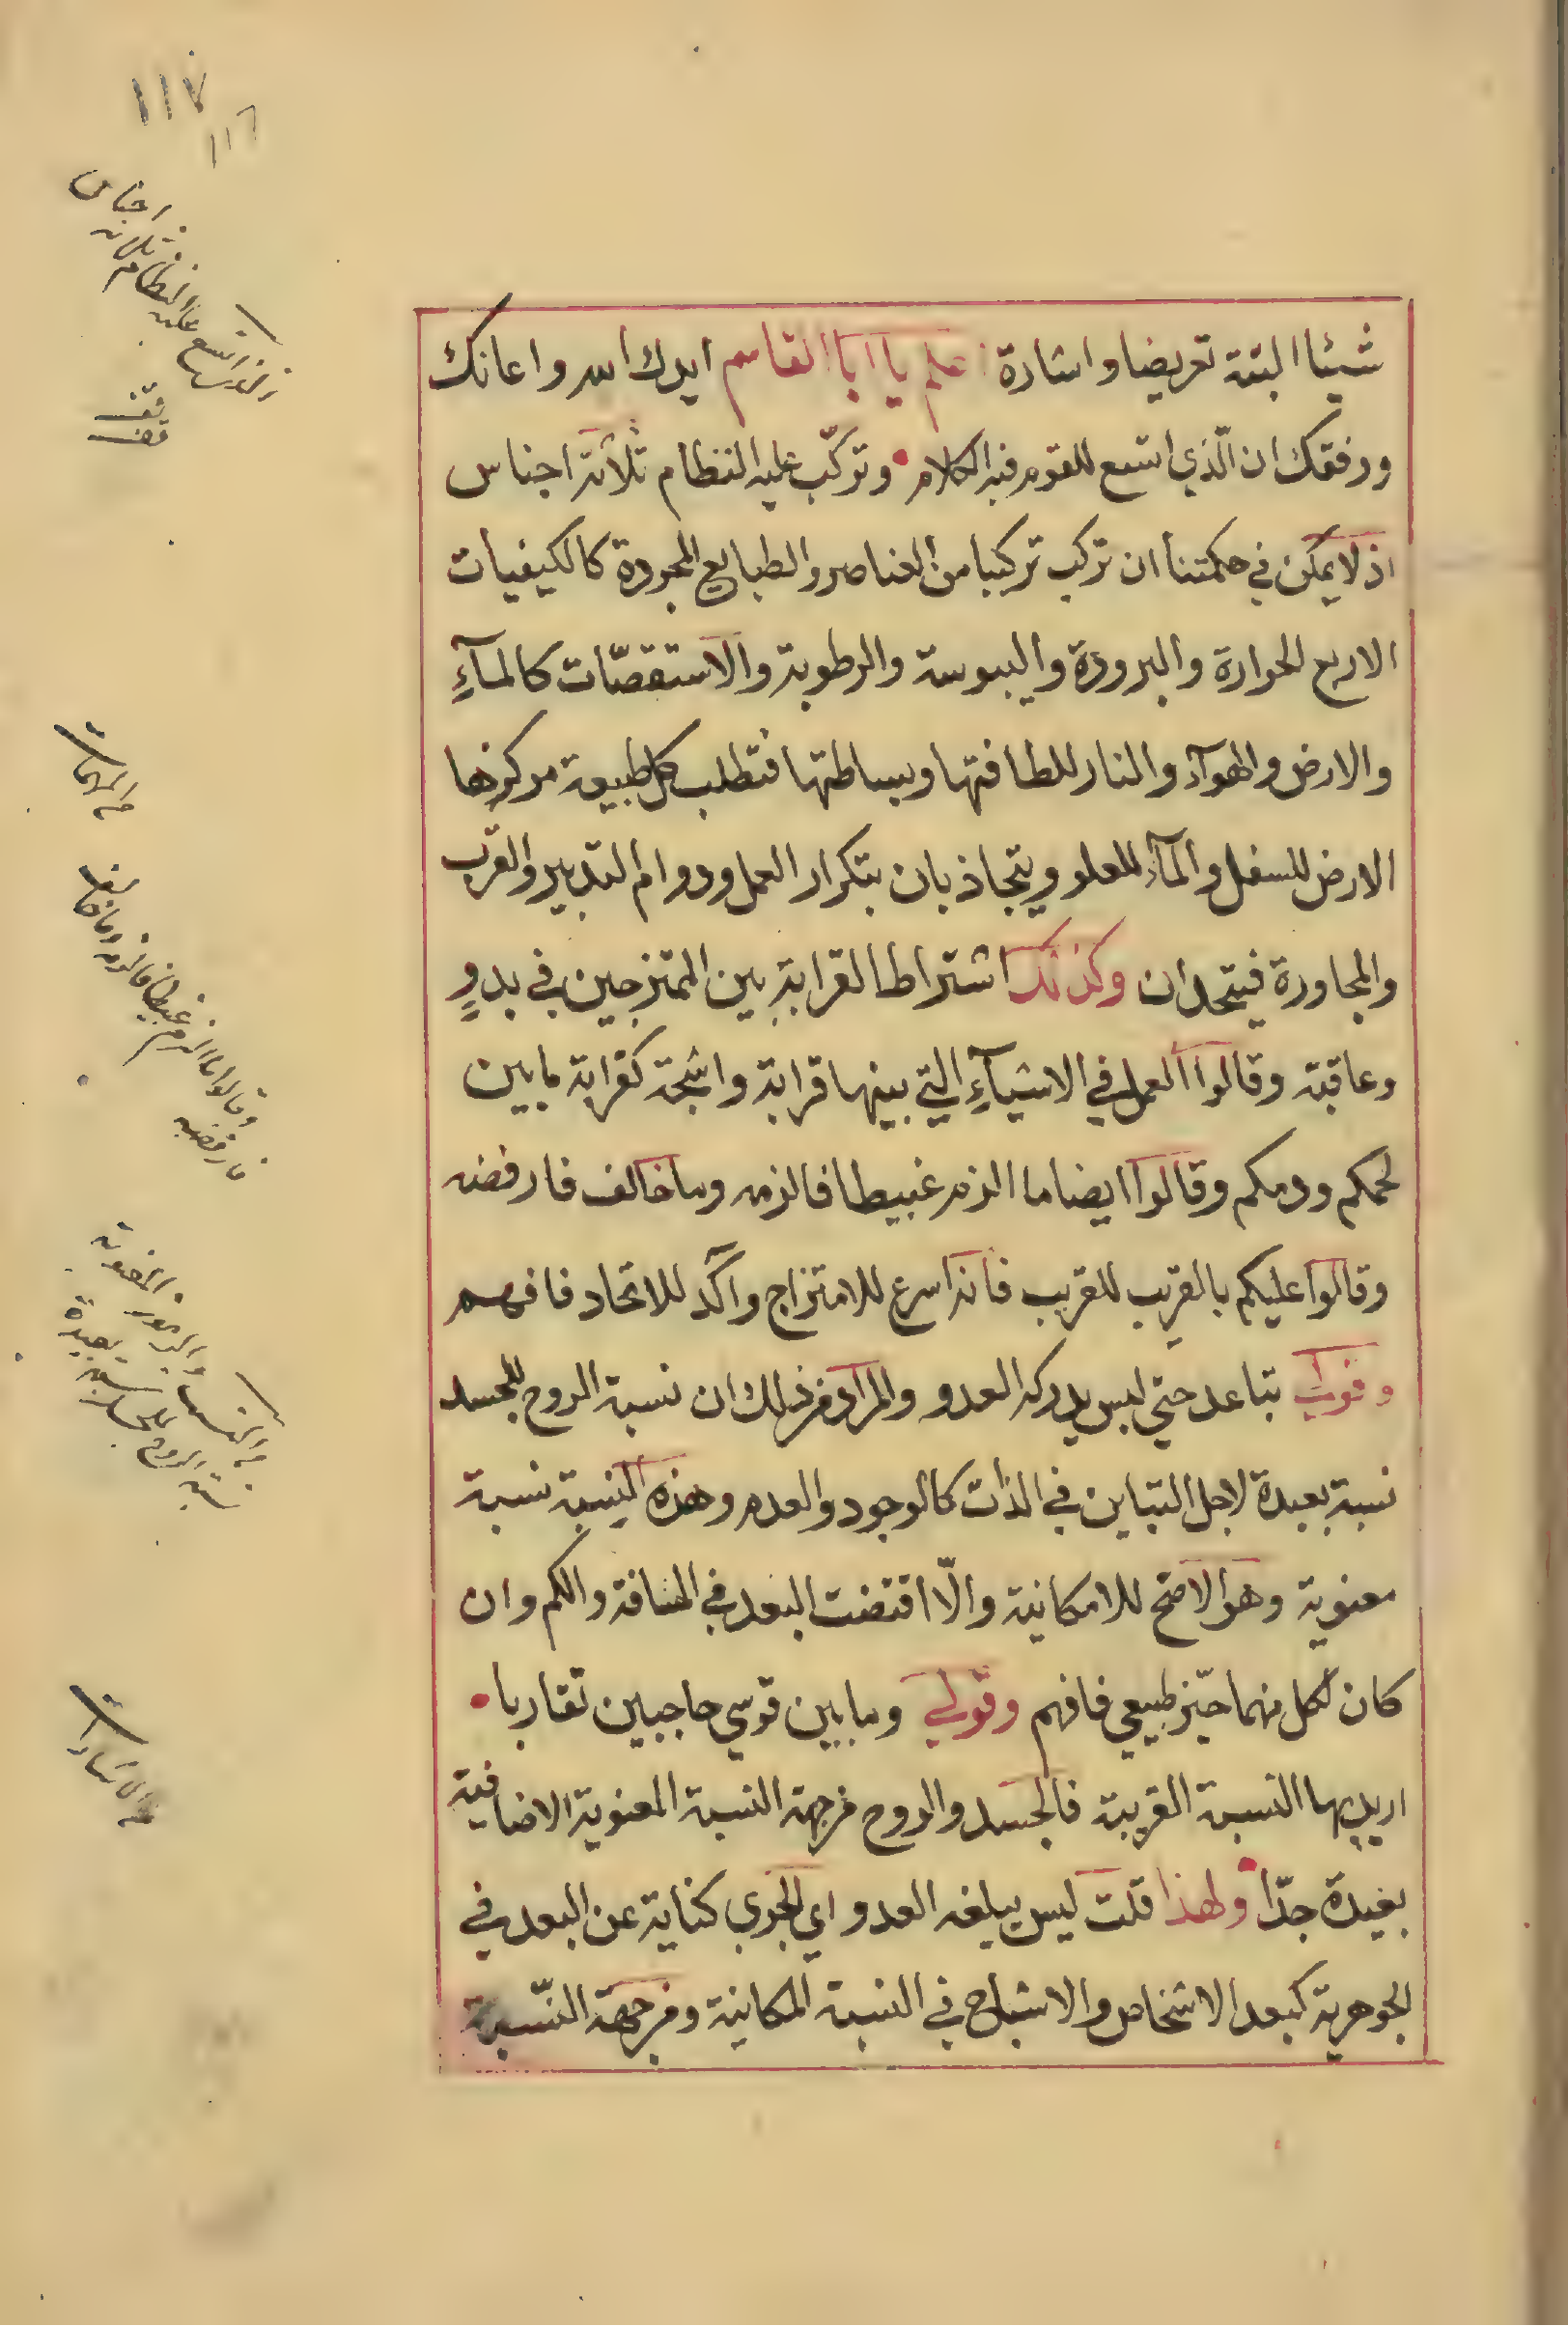 ١١٧
١١٦
شيئا البتة تعريضا واشارة اعلم يا ابا القاسم ايدك الله واعانك
ووفقك ان الّذي اتسع للقوم فيه الكلام وتركّب عليه النظام ثلاثة اجناس
اذ لا يمكن في حكمتنا ان تركب تركيبا من العناصر والطبايع المجردة كالكيفيات
الاربع الحرارة والبرودة واليبوسة والرطوبة والاستقصّات كالمآءِ
والارض والهوآء والنار للطافتها وبساطتها فتطلب كل طبيعة مركزها
الارض للسفل والمآء للعلو ويتجاذبان بتكرار العمل ودوام التدبير والقرب
والمجاورة فيتحدان وكذلك اشتراط القرابة بين الممتزجين في بدوٍ
وعاقبة وقالوا العمل في الاشيآءِ التي بينها قرابة واشجة كقرابة ما بين
لحمكم ودمكم وقالوا ايضا ما الزم غبيطا فالزمه وما خالف فارفضه
وقالوا عليكم بالقريب للقريب فانه اسرع للامتزاج وآكد للاتحاد فافهم
وقولي تباعد حتي ليس يدركه العدو والمراد من ذلك ان نسبة الروح للجسد
نسبة بعيدة لاجل التباين في الذات كالوجود والعدم وهذه النسبة نسبة
معنوية وهو الاصح للامكانية والّا اقتضت البعد في المسافة والكم وان
كان لكل منهما حيّز طبيعي فافهم وقولي وما بين قوسي حاجبين تقاربا
اريد بها النسبة القريبة فالجسد والروح من جهة النسبة المعنوية الاضافية
بعيدة جدّا ولهذا قلت ليس يبلغه العدو اي الجري كناية عن البعد في
الجوهرية كبعد الاشخاص والاشباح في النسبة المكانية ومن جهة النّسبة
اجناس
عليه النظام ثلاثة
وقالوا ما الزم غبيطا فالزمه وما خالف
فارفضه
نسبة الروح للجسد نسبة بعيدة